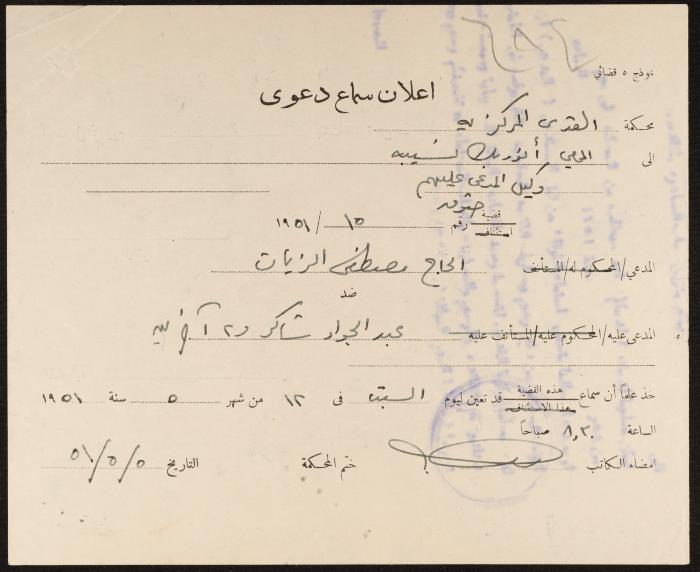 نموذج ٥ قضائي
اعلان سماع دعوى
محكمة القدس المركزية
الى المحامي أنور بك نسيبه
وكيل المدعى عليهم
قضية حقوق
استئناف
رقم ١٥ / ١٩٥١
المدعي/المحكوم له/المستأنف الحاج مصطفى الزيات
ضد
المدعى عليه/المحكوم عليه/المستأنف عليه عبد الجواد شاكر و٢ آخرين
خذ علماً أن سماع هذه القضية
هذا الاستئناف
قد تعين ليوم السبت في ١٢ من شهر ٥ سنة ١٩٥١
الساعة ٨,٣٠ صباحاً
امضاء الكاتب ختم المحكمة التاريخ ٥١/٥/٥